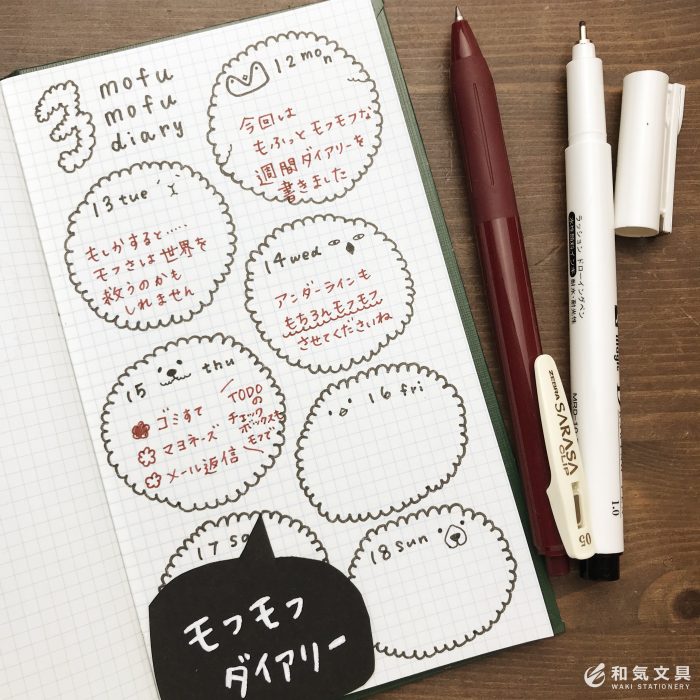 3
mofu
mofu
diary
12 mon
今回は
もふっとモフモフな
週間ダイアリーを
書きました
13 tue
もしかすると.....
モフさは世界を
救うのかも
しれません
14 wed
アンダーラインも
もちろんモフモフ
させてくださいね
15 thu
ゴミすて
マヨネーズ
メール返信
TODO
の
チェック
ボックスも
モフで
16 fri
17
18 sun
モフモフ
ダイアリー
ZEBRA
SARASA
CLIP
05
ラッション ドローイングペン
1.0
和気文具
WAKI STATIONERY